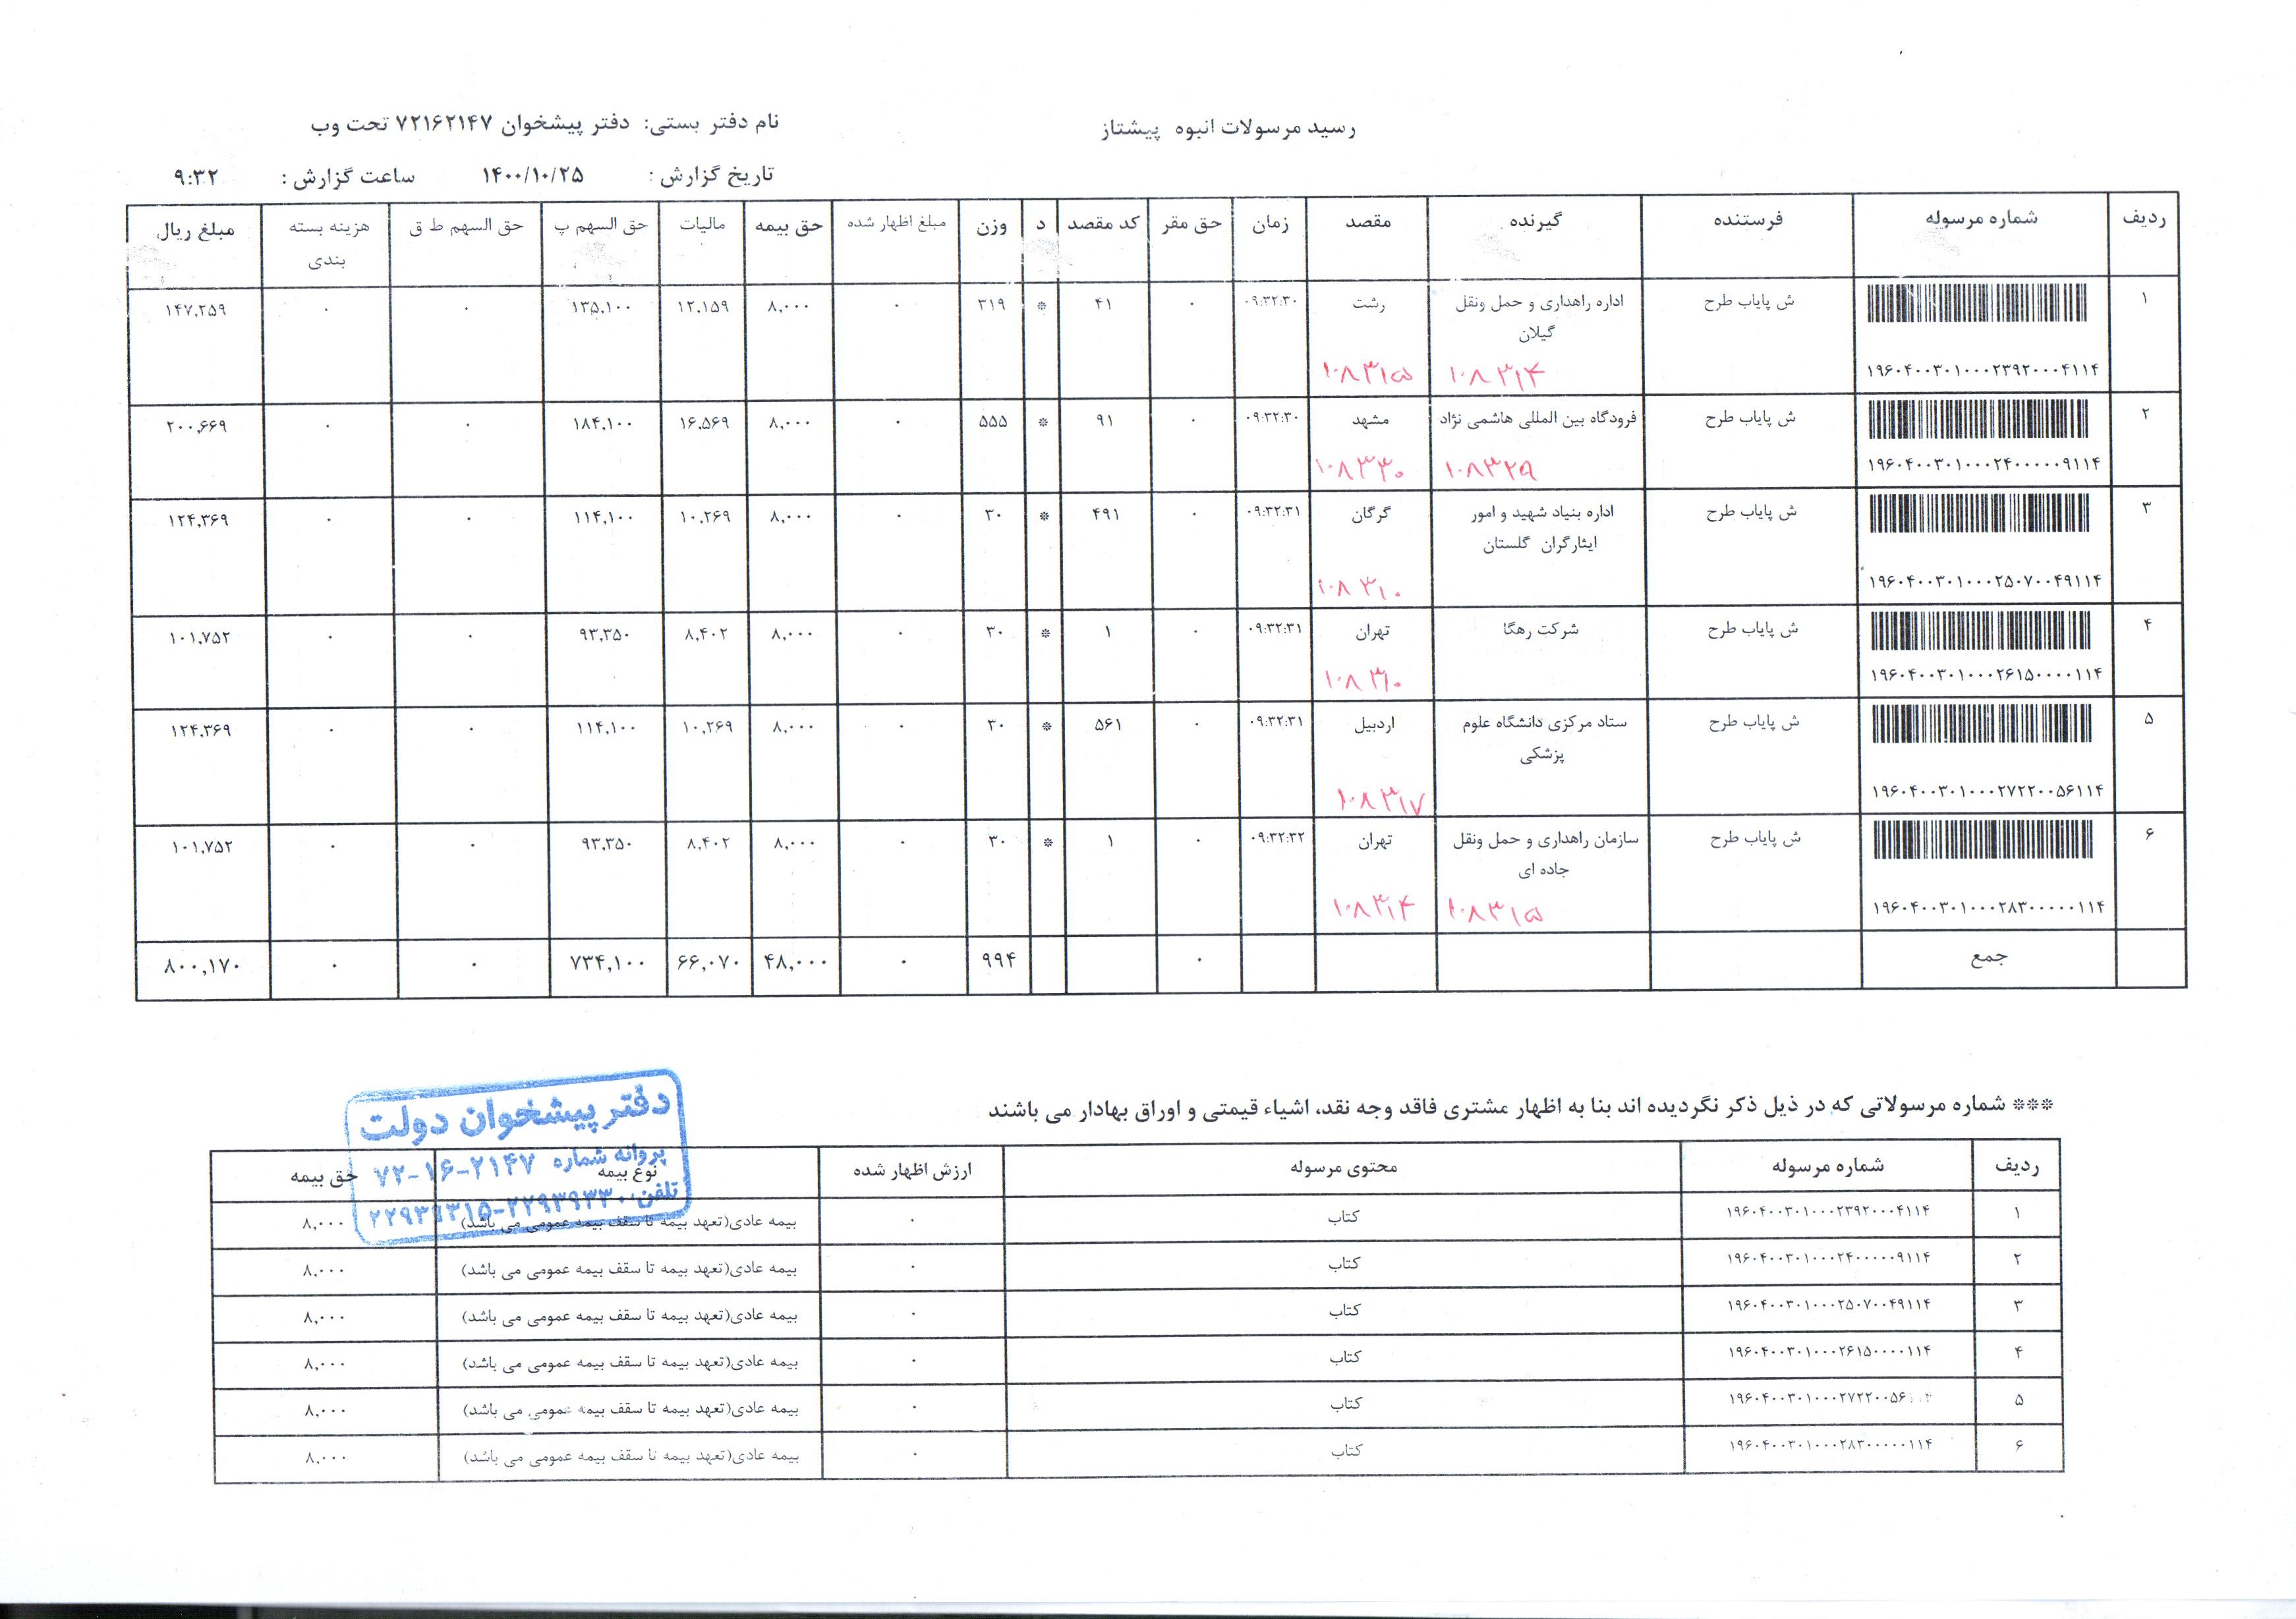 رسید مرسولات انبوه پیشتاز
نام دفتر پستی: دفتر پیشخوان ۷۲۱۶۲۱۴۷ تحت وب
تاریخ گزارش : ۱۴۰۰/۱۰/۲۵ ساعت گزارش : ۹:۳۲
ردیف شماره مرسوله فرستنده گیرنده مقصد زمان حق مقر کد مقصد د وزن مبلغ اظهار شده حق بیمه مالیات حق السهم پ حق السهم ط ق هزینه بسته بندی مبلغ ریال
۱ ش پایاب طرح اداره راهداری و حمل ونقل رشت ۰۹:۳۲:۳۰ ۰ ۴۱ * ۳۱۹ ۰ ۸,۰۰۰ ۱۲,۱۵۹ ۱۳۵,۱۰۰ ۰ ۰ ۱۴۷,۲۵۹
گیلان
۱۹۶۰۴۰۰۳۰۱۰۰۰۲۳۹۲۰۰۰۴۱۱۴ ۱۰۸۳۱۴ ۱۰۸۳۱۵
۲ ش پایاب طرح فرودگاه بین المللی هاشمی نژاد مشهد ۰۹:۳۲:۳۰ ۰ ۹۱ * ۵۵۵ ۰ ۸,۰۰۰ ۱۶,۵۶۹ ۱۸۴,۱۰۰ ۰ ۰ ۲۰۰,۶۶۹
۱۹۶۰۴۰۰۳۰۱۰۰۰۲۴۰۰۰۰۰۹۱۱۴ ۱۰۸۳۲۹ ۱۰۸۳۳۰
۳ ش پایاب طرح اداره بنیاد شهید و امور گرگان ۰۹:۳۲:۳۱ ۰ ۴۹۱ * ۳۰ ۰ ۸,۰۰۰ ۱۰,۲۶۹ ۱۱۴,۱۰۰ ۰ ۰ ۱۲۴,۳۶۹
ایثارگران گلستان
۱۹۶۰۴۰۰۳۰۱۰۰۰۲۵۰۷۰۰۴۹۱۱۴ ۱۰۸۳۱۰
۴ ش پایاب طرح شرکت رهگا تهران ۰۹:۳۲:۳۱ ۰ ۱ * ۳۰ ۰ ۸,۰۰۰ ۸,۴۰۲ ۹۳,۳۵۰ ۰ ۰ ۱۰۱,۷۵۲
۱۹۶۰۴۰۰۳۰۱۰۰۰۲۶۱۵۰۰۰۰۱۱۴ ۱۰۸۳۱۰
۵ ش پایاب طرح ستاد مرکزی دانشگاه علوم اردبیل ۰۹:۳۲:۳۱ ۰ ۵۶۱ * ۳۰ ۰ ۸,۰۰۰ ۱۰,۲۶۹ ۱۱۴,۱۰۰ ۰ ۰ ۱۲۴,۳۶۹
پزشکی
۱۹۶۰۴۰۰۳۰۱۰۰۰۲۷۲۲۰۰۵۶۱۱۴ ۱۰۸۳۱۷
۶ ش پایاب طرح سازمان راهداری و حمل ونقل تهران ۰۹:۳۲:۳۲ ۰ ۱ * ۳۰ ۰ ۸,۰۰۰ ۸,۴۰۲ ۹۳,۳۵۰ ۰ ۰ ۱۰۱,۷۵۲
جاده ای
۱۹۶۰۴۰۰۳۰۱۰۰۰۲۸۳۰۰۰۰۰۱۱۴ ۱۰۸۳۱۵ ۱۰۸۳۱۴
جمع ۰ ۹۹۴ ۰ ۴۸,۰۰۰ ۶۶,۰۷۰ ۷۳۴,۱۰۰ ۰ ۰ ۸۰۰,۱۷۰
*** شماره مرسولاتی که در ذیل ذکر نگردیده اند بنا به اظهار مشتری فاقد وجه نقد، اشیاء قیمتی و اوراق بهادار می باشند
دفتر پیشخوان دولت
پروانه شماره ۷۲-۱۶-۲۱۴۷
تلفن: ۲۲۹۳۹۳۱۵-۲۲۹۳۹۳۳۰
ردیف شماره مرسوله محتوی مرسوله ارزش اظهار شده نوع بیمه حق بیمه
۱ ۱۹۶۰۴۰۰۳۰۱۰۰۰۲۳۹۲۰۰۰۴۱۱۴ کتاب ۰ بیمه عادی(تعهد بیمه تا سقف بیمه عمومی می باشد) ۸,۰۰۰
۲ ۱۹۶۰۴۰۰۳۰۱۰۰۰۲۴۰۰۰۰۰۹۱۱۴ کتاب ۰ بیمه عادی(تعهد بیمه تا سقف بیمه عمومی می باشد) ۸,۰۰۰
۳ ۱۹۶۰۴۰۰۳۰۱۰۰۰۲۵۰۷۰۰۴۹۱۱۴ کتاب ۰ بیمه عادی(تعهد بیمه تا سقف بیمه عمومی می باشد) ۸,۰۰۰
۴ ۱۹۶۰۴۰۰۳۰۱۰۰۰۲۶۱۵۰۰۰۰۱۱۴ کتاب ۰ بیمه عادی(تعهد بیمه تا سقف بیمه عمومی می باشد) ۸,۰۰۰
۵ ۱۹۶۰۴۰۰۳۰۱۰۰۰۲۷۲۲۰۰۵۶۱۱۴ کتاب ۰ بیمه عادی(تعهد بیمه تا سقف بیمه عمومی می باشد) ۸,۰۰۰
۶ ۱۹۶۰۴۰۰۳۰۱۰۰۰۲۸۳۰۰۰۰۰۱۱۴ کتاب ۰ بیمه عادی(تعهد بیمه تا سقف بیمه عمومی می باشد) ۸,۰۰۰